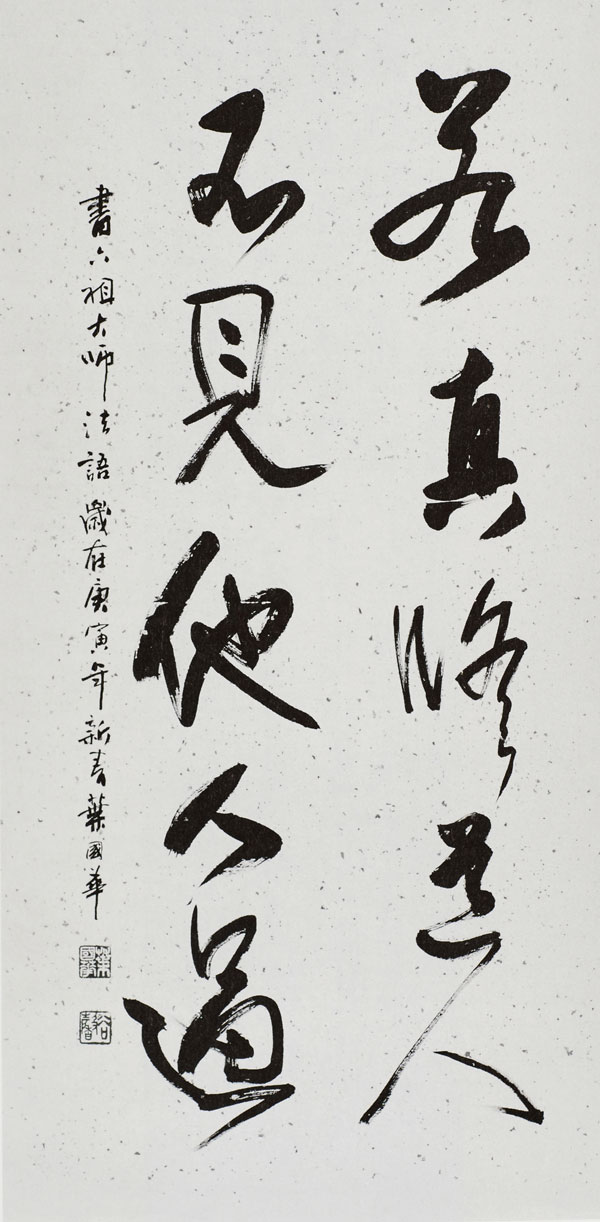 若真修道人
不見他人過
書六祖大師法語歲在庚寅年新春葉國華
葉國華